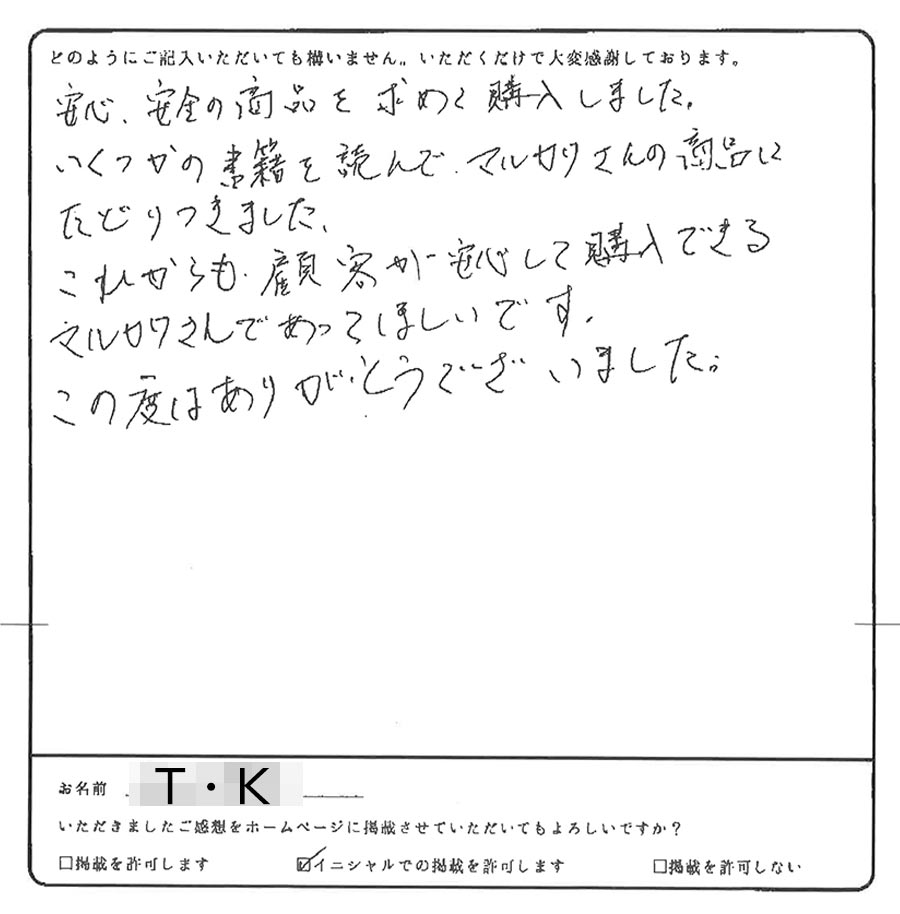 どのようにご記入いただいても構いません。いただくだけで大変感謝しております。
安心、安全の商品を求めて購入しました。
いくつかの書籍を読んで、マルカワさんの商品に
たどりつきました、
これからも、顧客が安心して購入できる
マルカワさんであってほしいです。
この度はありがとうございました。
お名前 T・K
いただきましたご感想をホームページに掲載させていただいてもよろしいですか?
□掲載を許可します ☑イニシャルでの掲載を許可します □掲載を許可しない